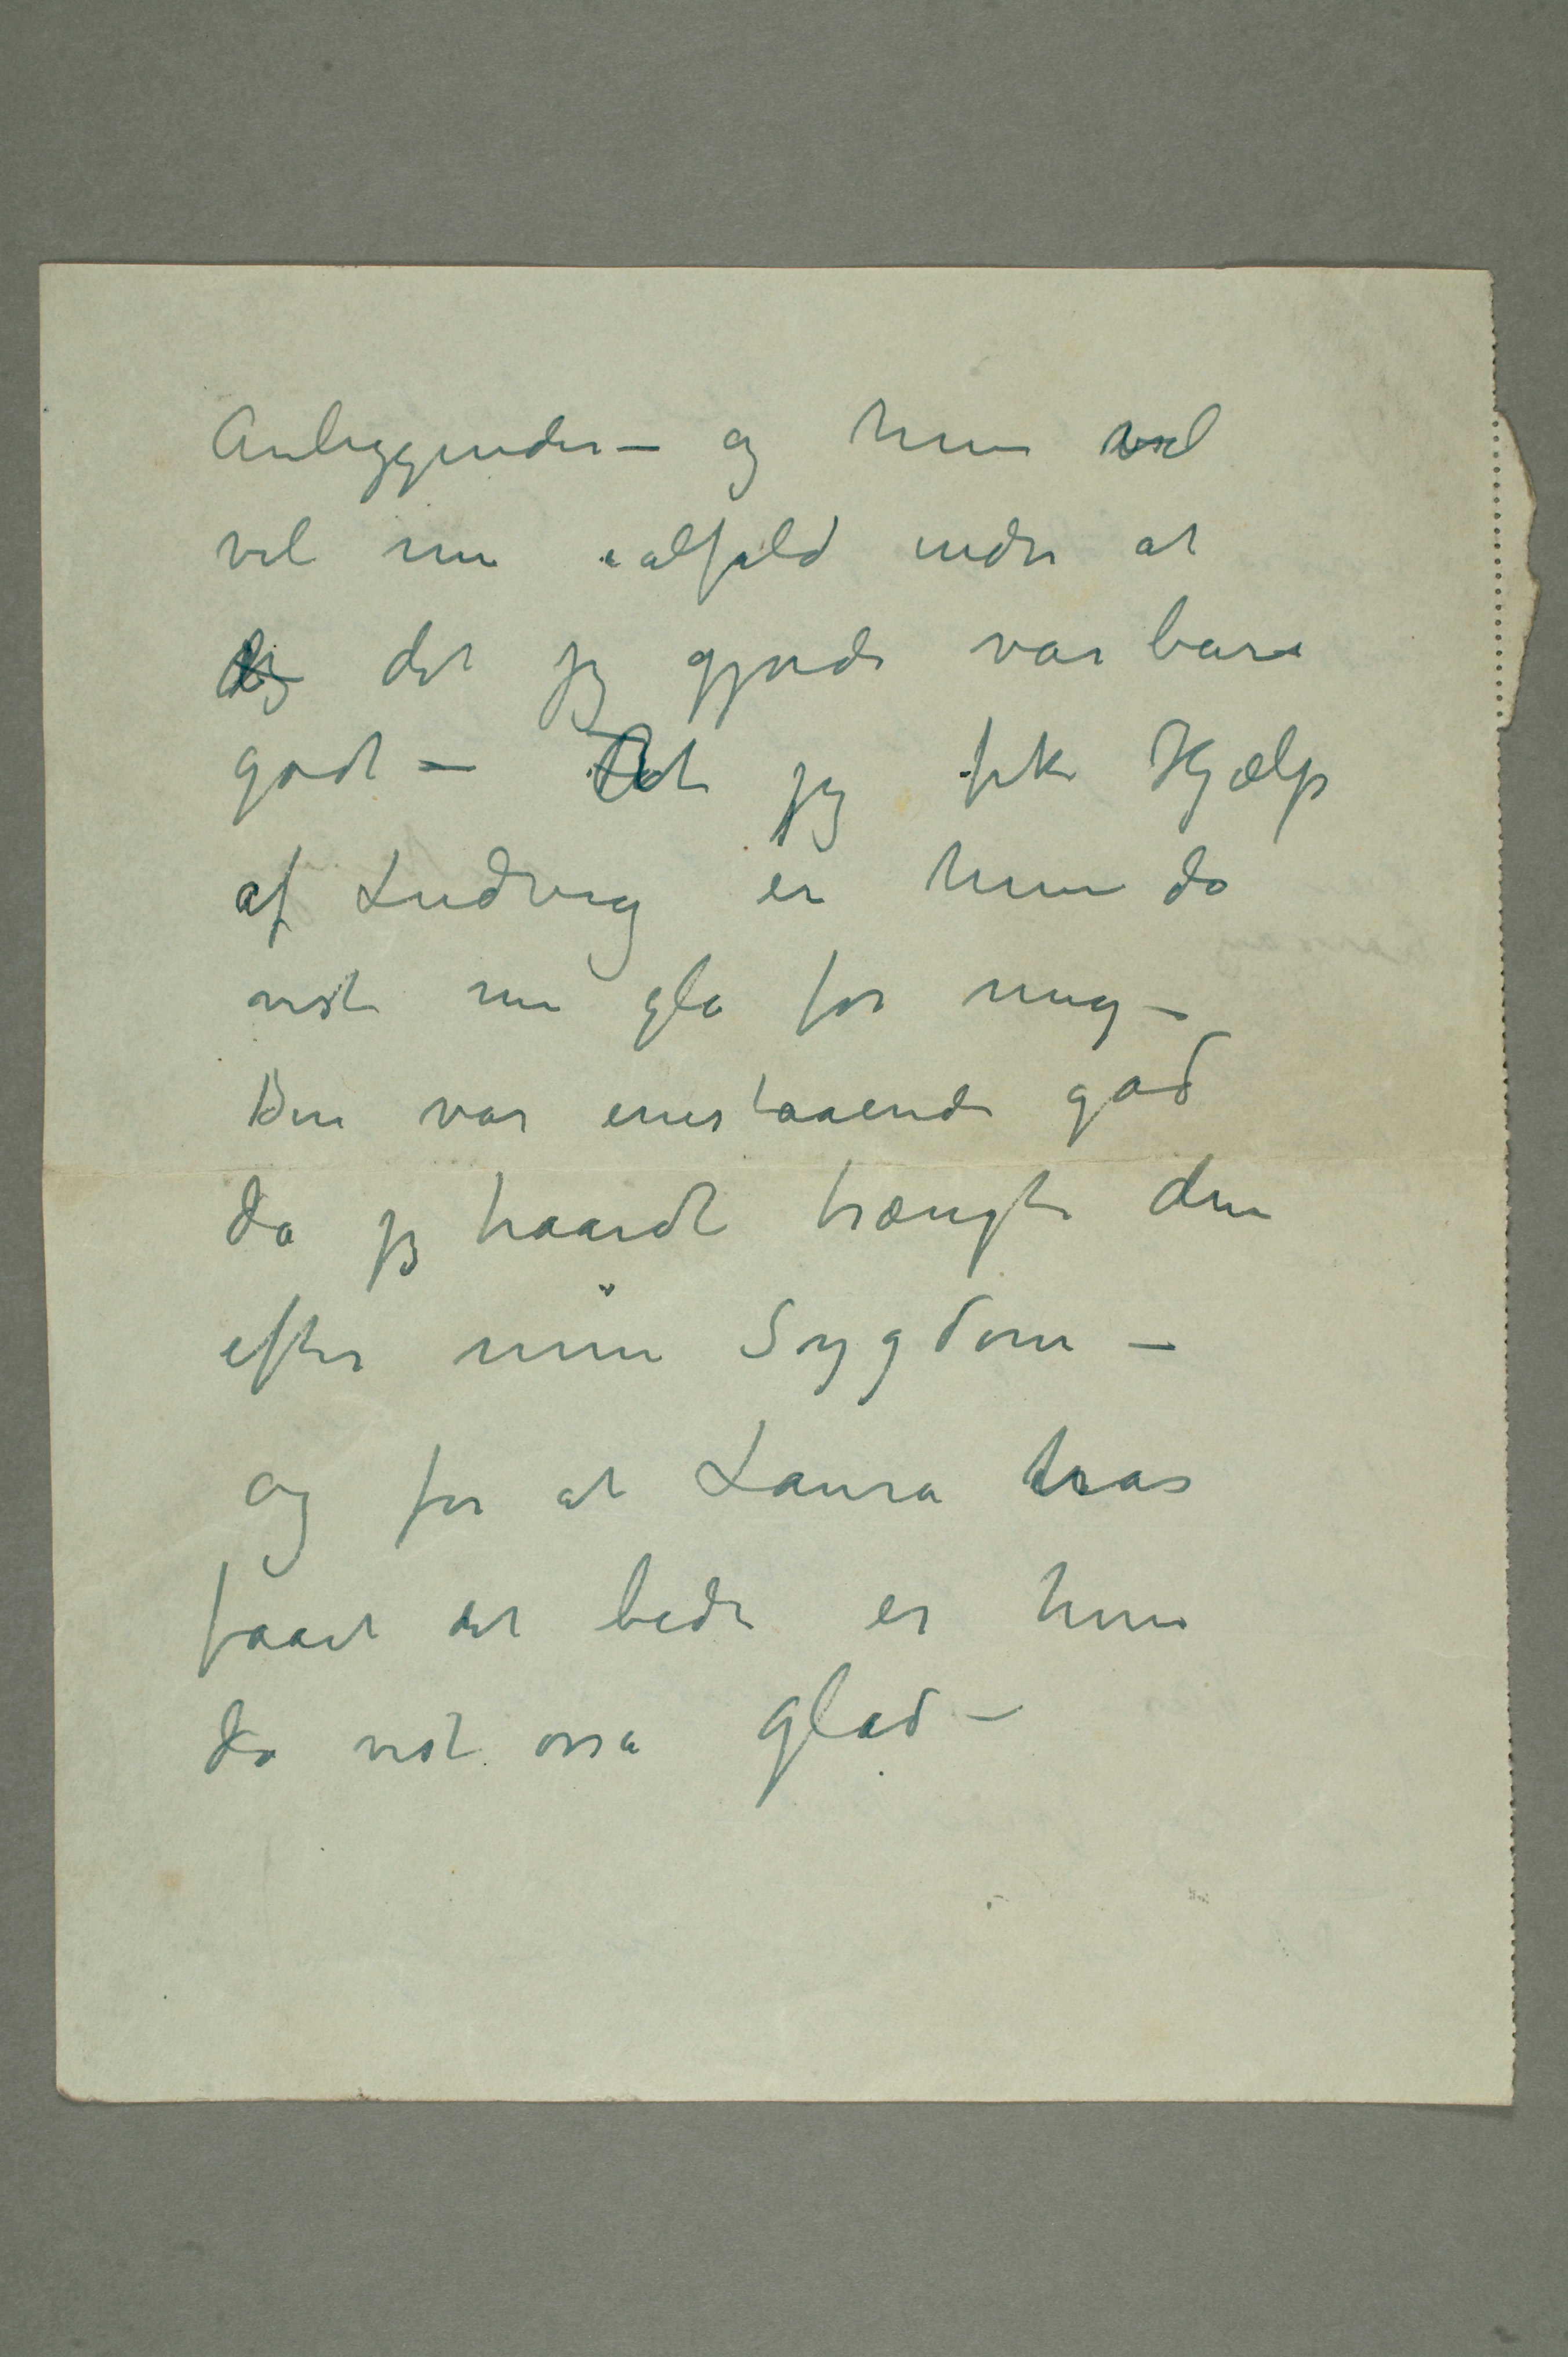 Anliggender – og hun vel
vel nu ialfald indse at
det jeg gjorde var bare
godt – At jeg fik Hjælp
af Ludvig er hun da
vist nu gla for mig –
Den var enestaaende god
da jeg haardt trængte den
efter min Sygdom –
Og for at Laura har
faaet det bedre er hun
da vist osså glad –